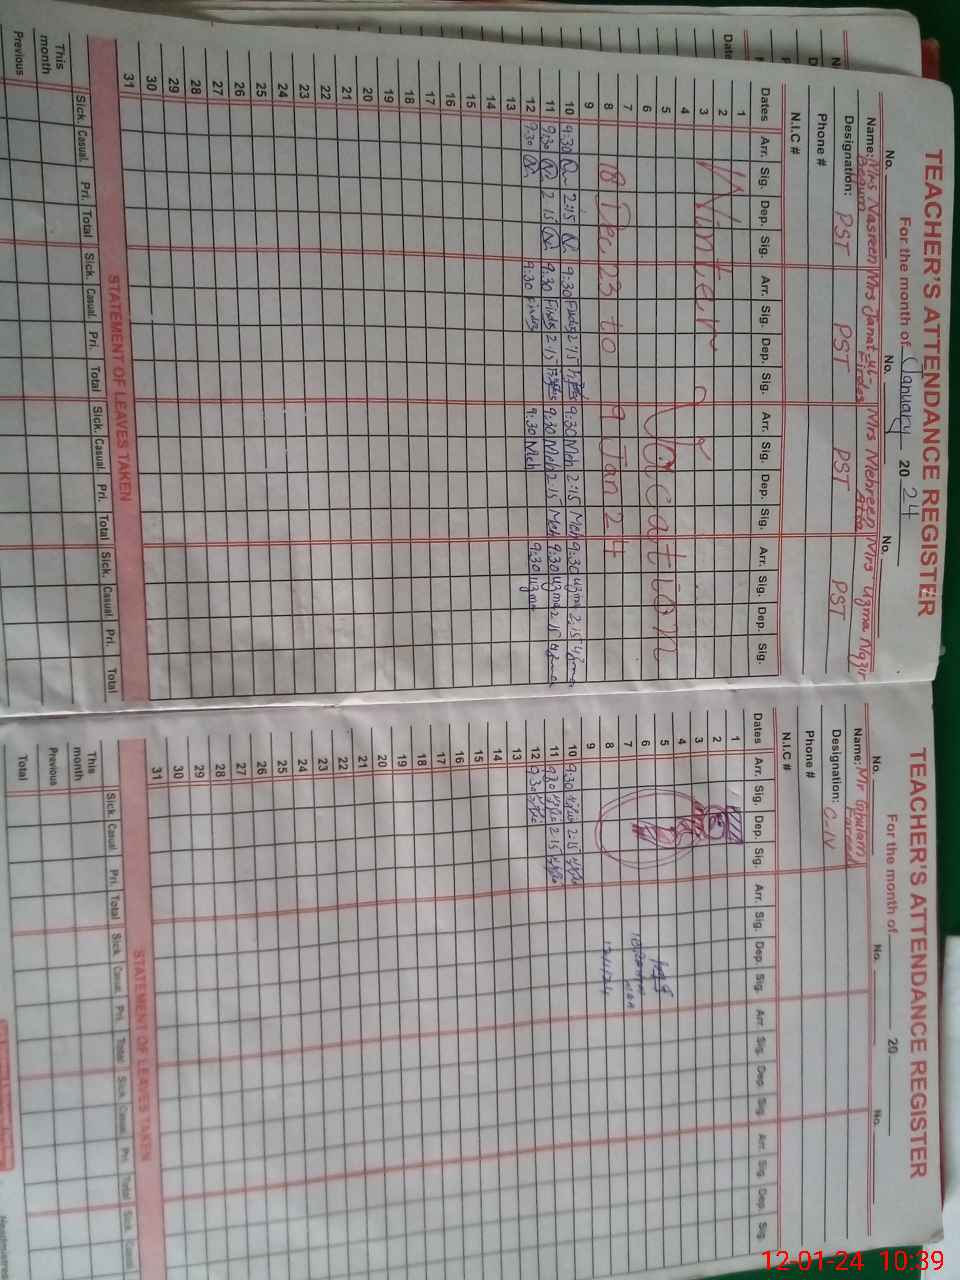 TEACHER'S ATTENDANCE REGISTER
For the month of January 2024
No. No. No.
Name: Mrs Nasreen Begum Mrs Janat-ul-Firdos Mrs Mehreen Atta Mrs Uzma Nazir
Designation: PST PST PST PST
Phone #
N.I.C #
Dates Arr. Sig. Dep. Sig. Arr. Sig. Dep. Sig. Arr. Sig. Dep. Sig. Arr. Sig. Dep. Sig.
1
2
3 Winter
4
5
6 Vacation
7
8 18 Dec 23 to 9 Jan 24
9
10 9:30 2:15 9:30 Firdos 2:15 9:30 Meh 2:15 Meh 9:30 Uzma 2:15 Uzma
11 9:30 2:15 9:30 Firdos 2:15 9:30 Meh 2:15 Meh 9:30 Uzma 2:15 Uzma
12 9:30 9:30 Firdos 9:30 Meh 9:30 Uzma
13
14
15
16
17
18
19
20
21
22
23
24
25
26
27
28
29
30
31
STATEMENT OF LEAVES TAKEN
Sick. Casual. Pri. Total Sick. Casual. Pri. Total Sick. Casual. Pri. Total Sick. Casual. Pri. Total
This month
Previous
TEACHER'S ATTENDANCE REGISTER
For the month of 20
No. No. No.
Name: Mr Ghulam Fareed
Designation: C-IV
Phone #
N.I.C #
Dates Arr. Sig. Dep. Sig. Arr. Sig. Dep. Sig. Arr. Sig. Dep. Sig. Arr. Sig. Dep. Sig.
1
2
3
4
5
6
7
8 12/1/24
9
10 9:30 2:15
11 9:30 2:15
12 9:30
13
14
15
16
17
18
19
20
21
22
23
24
25
26
27
28
29
30
31
STATEMENT OF LEAVES TAKEN
Sick. Casual. Pri. Total Sick. Casual. Pri. Total Sick. Casual. Pri. Total Sick. Casual.
This month
Previous
Total
12-01-24 10:39